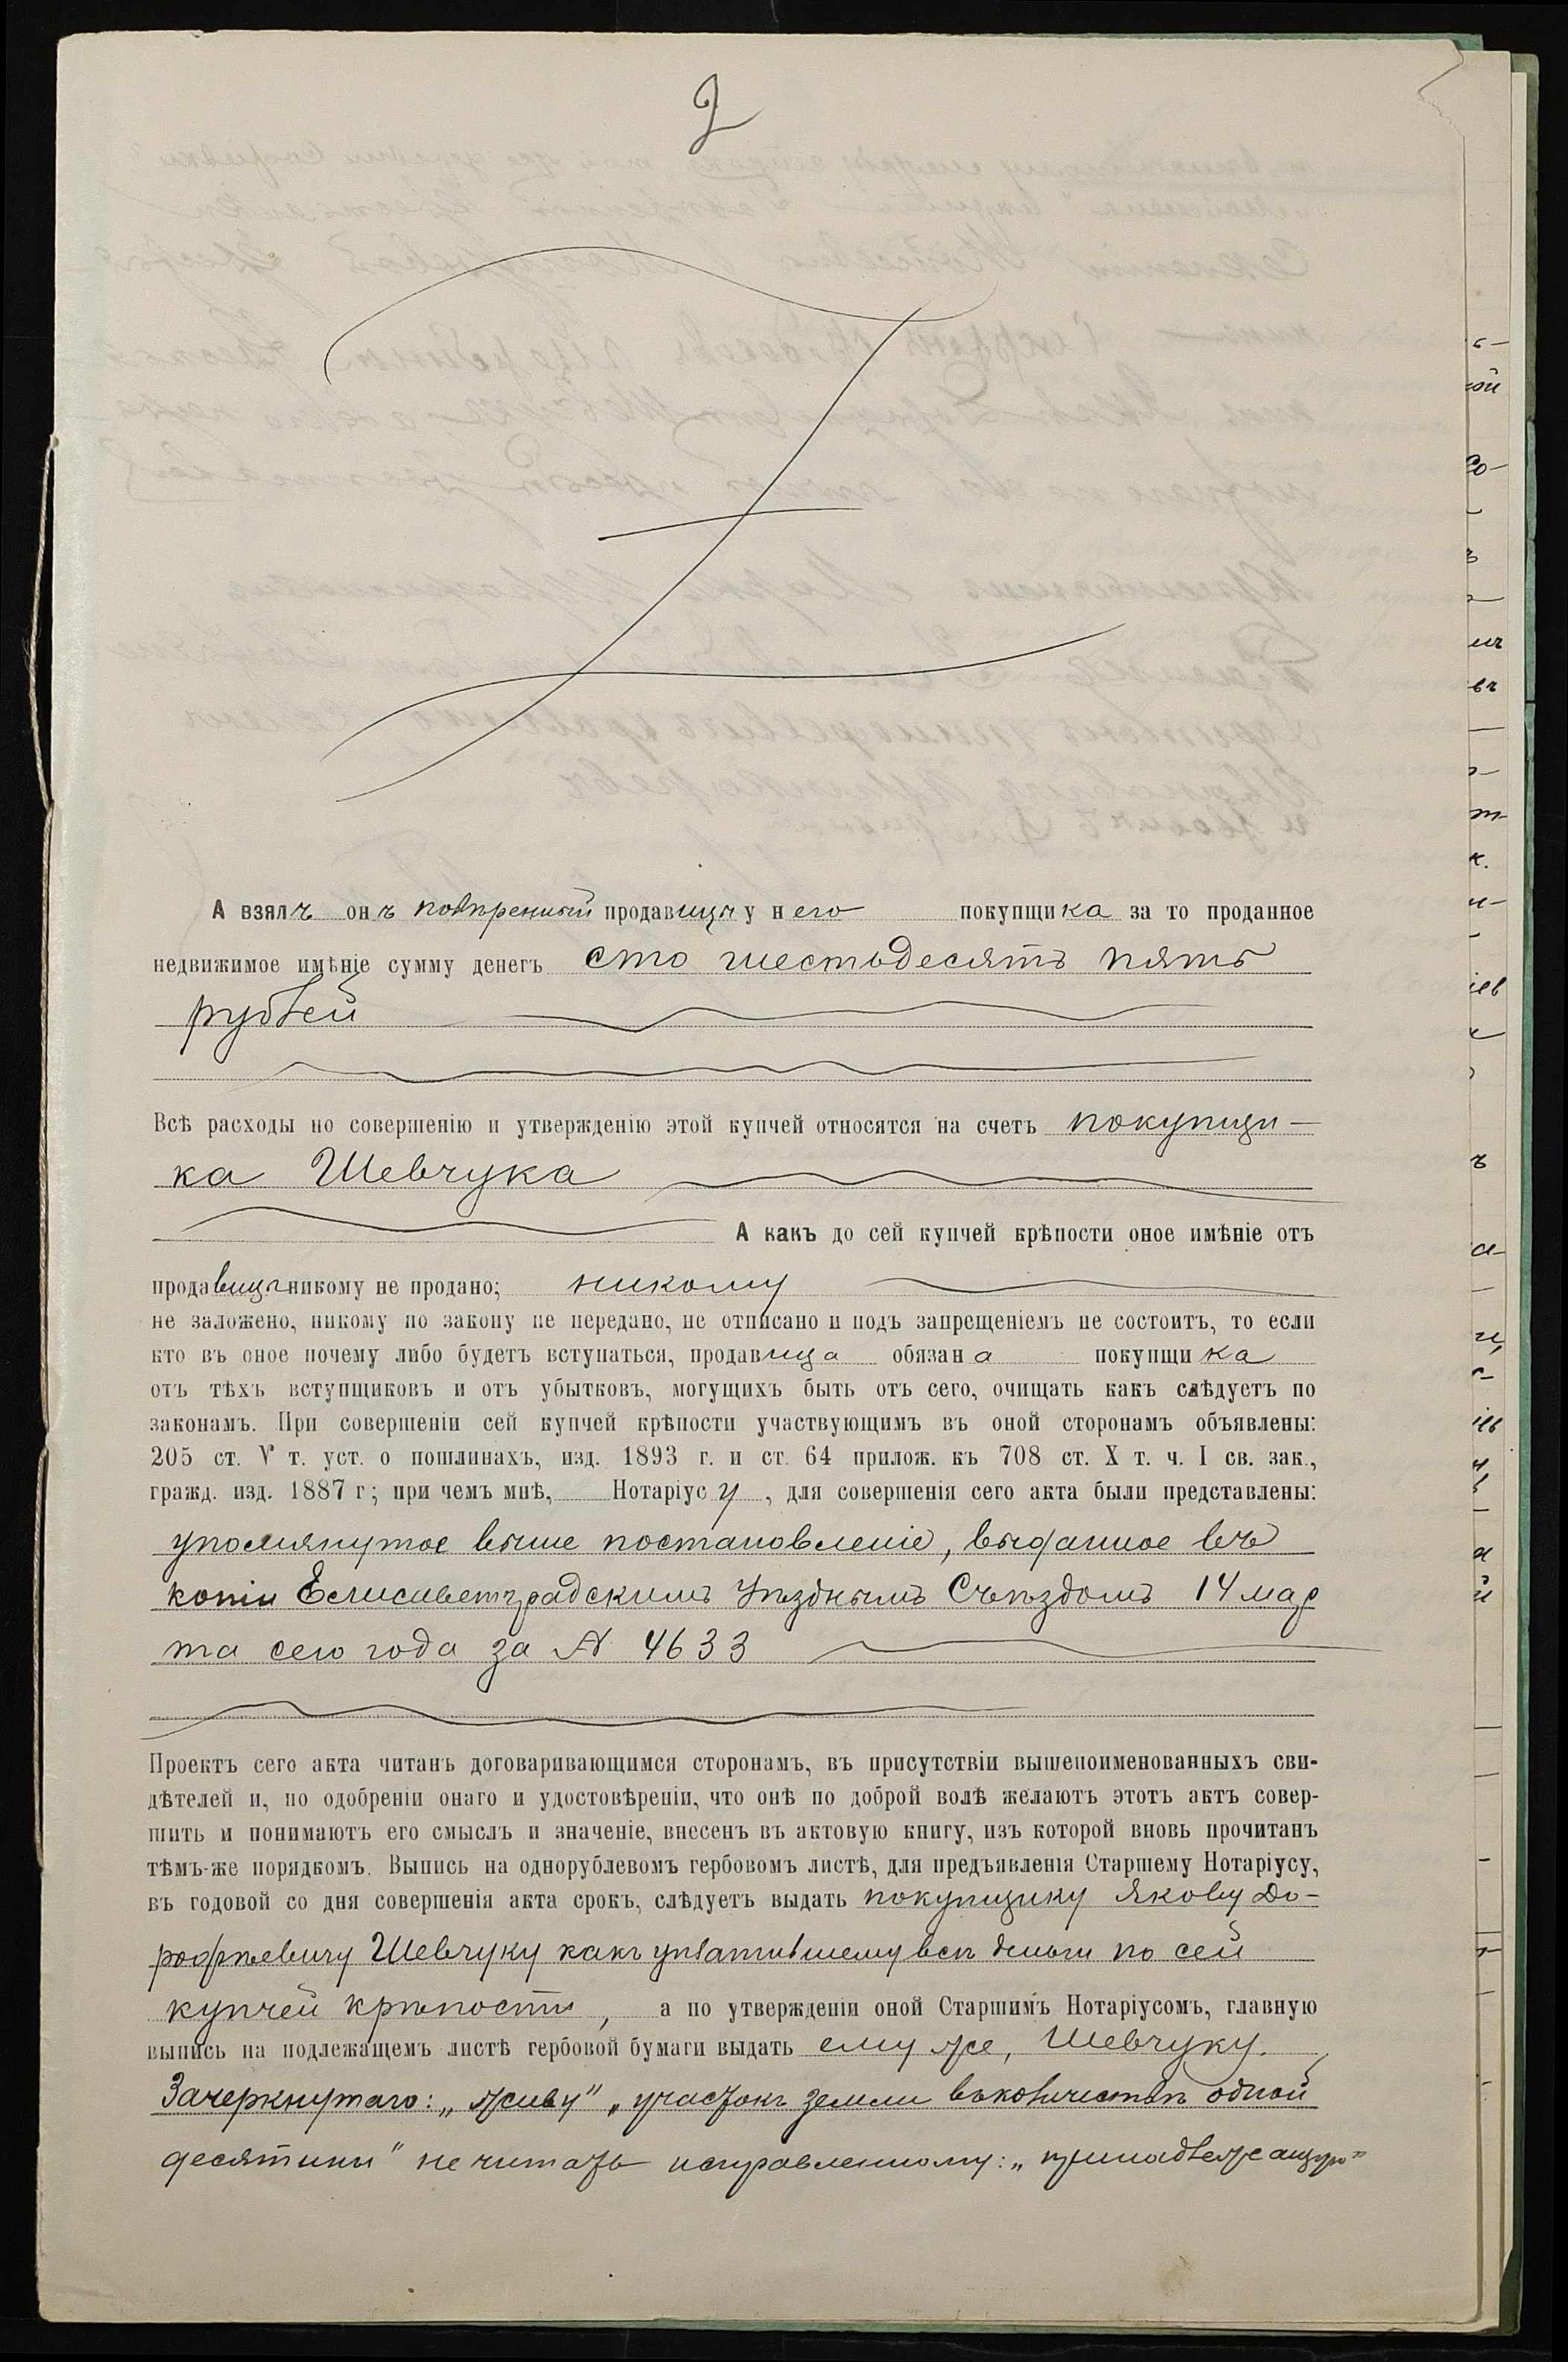 2
А взялъ онъ повѣренный продавицы у него покупщика за то проданное
недвижимое имѣніе сумму денегъ сто шестьдесятъ пять
рублей
Всѣ расходы по совершенію и утвержденію этой купчей относятся на счетъ покупщи-
ка Шевчука
А какъ до сей купчей крѣпости оное имѣніе отъ
продавицы никому не продано; никому
не заложено, никому по закону не передано, не отписано и подъ запрещеніемъ не состоитъ, то если
кто въ оное почему либо будетъ вступаться, продавица обязана покупщика
отъ тѣхъ вступщиковъ и отъ убытковъ, могущихъ быть отъ сего, очищать какъ слѣдуетъ по
законамъ. При совершеніи сей купчей крѣпости участвующимъ въ оной сторонамъ объявлены:
205 ст. V т. уст. о пошлинахъ, изд. 1893 г. и ст. 64 прилож. къ 708 ст. X т. ч. I св. зак.,
гражд. изд. 1887 г; при чемъ мнѣ, Нотаріусу, для совершенія сего акта были представлены:
упомянутое выше постановленіе, выданное въ
копіи Елисаветградскимъ Уѣзднымъ Съѣздомъ 14 мар
та сего года за № 4633
Проектъ сего акта читанъ договаривающимся сторонамъ, въ присутствіи вышепоименованныхъ сви-
дѣтелей и, по одобреніи онаго и удостовѣреніи, что онѣ по доброй волѣ желаютъ этотъ актъ совер-
шить и понимаютъ его смыслъ и значеніе, внесенъ въ актовую книгу, изъ которой вновь прочитанъ
тѣмъ-же порядкомъ. Выпись на однорублевомъ гербовомъ листѣ, для предъявленія Старшему Нотаріусу,
въ годовой со дня совершенія акта срокъ, слѣдуетъ выдать покупщику Якову До-
рофѣевичу Шевчуку какъ уплатившему всѣ деньги по сей
купчей крѣпости, а по утвержденіи оной Старшимъ Нотаріусомъ, главную
выпись на подлежащемъ листѣ гербовой бумаги выдать ему же, Шевчуку.
Зачеркнутаго: „живу" „участокъ земли въ количествѣ одной
десятины" не читать исправленному: „принадлежащую"